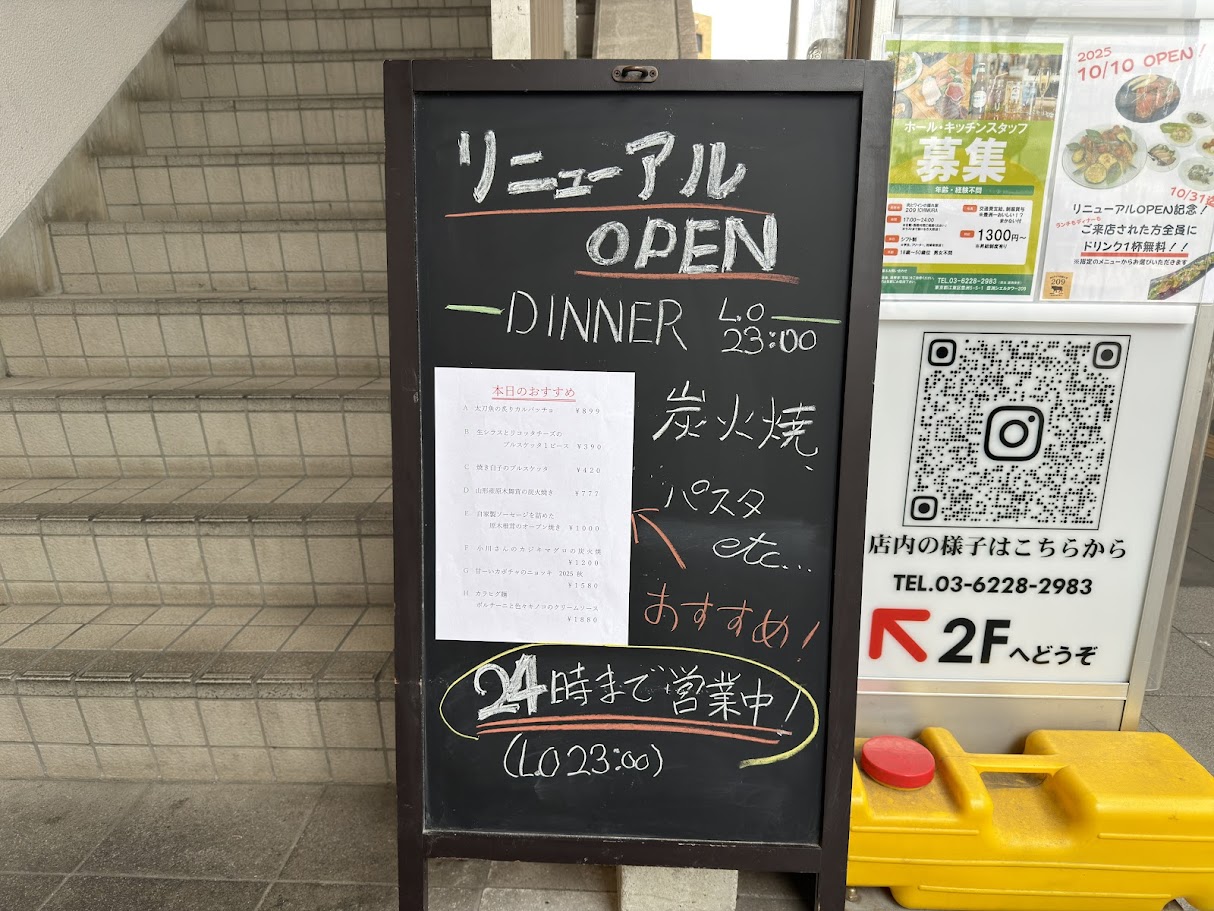 リニューアル
OPEN
DINNER L.O
23:00
本日のおすすめ
A 太刀魚の炙りカルパッチョ ¥899
B 生シラスとリコッタチーズの
ブルスケッタ1ピース ¥390
C 焼き白子のブルスケッタ ¥420
D 山形産原木舞茸の炭火焼き ¥777
E 自家製ソーセージを詰めた
原木椎茸のオーブン焼き ¥1000
F 小川さんのカジキマグロの炭火焼
¥1200
G 甘～いカボチャのニョッキ 2025 秋
¥1580
H カラヒグ麺
ポルチーニと色々キノコのクリームソース
¥1880
炭火焼
パスタ
etc...
おすすめ!
24時まで営業中!
(L.O 23:00)
ホール・キッチンスタッフ
募集
年齢・経験不問
209
17:00～24:00
シフト制
1300円～
TEL.03-6228-2983
2025
10/10 OPEN!
10/31迄
リニューアルOPEN記念!
ランチもディナーも
ご来店された方全員に
ドリンク1杯無料!!
※指定のメニューからお選びいただきます
209
店内の様子はこちらから
TEL.03-6228-2983
2Fへどうぞ